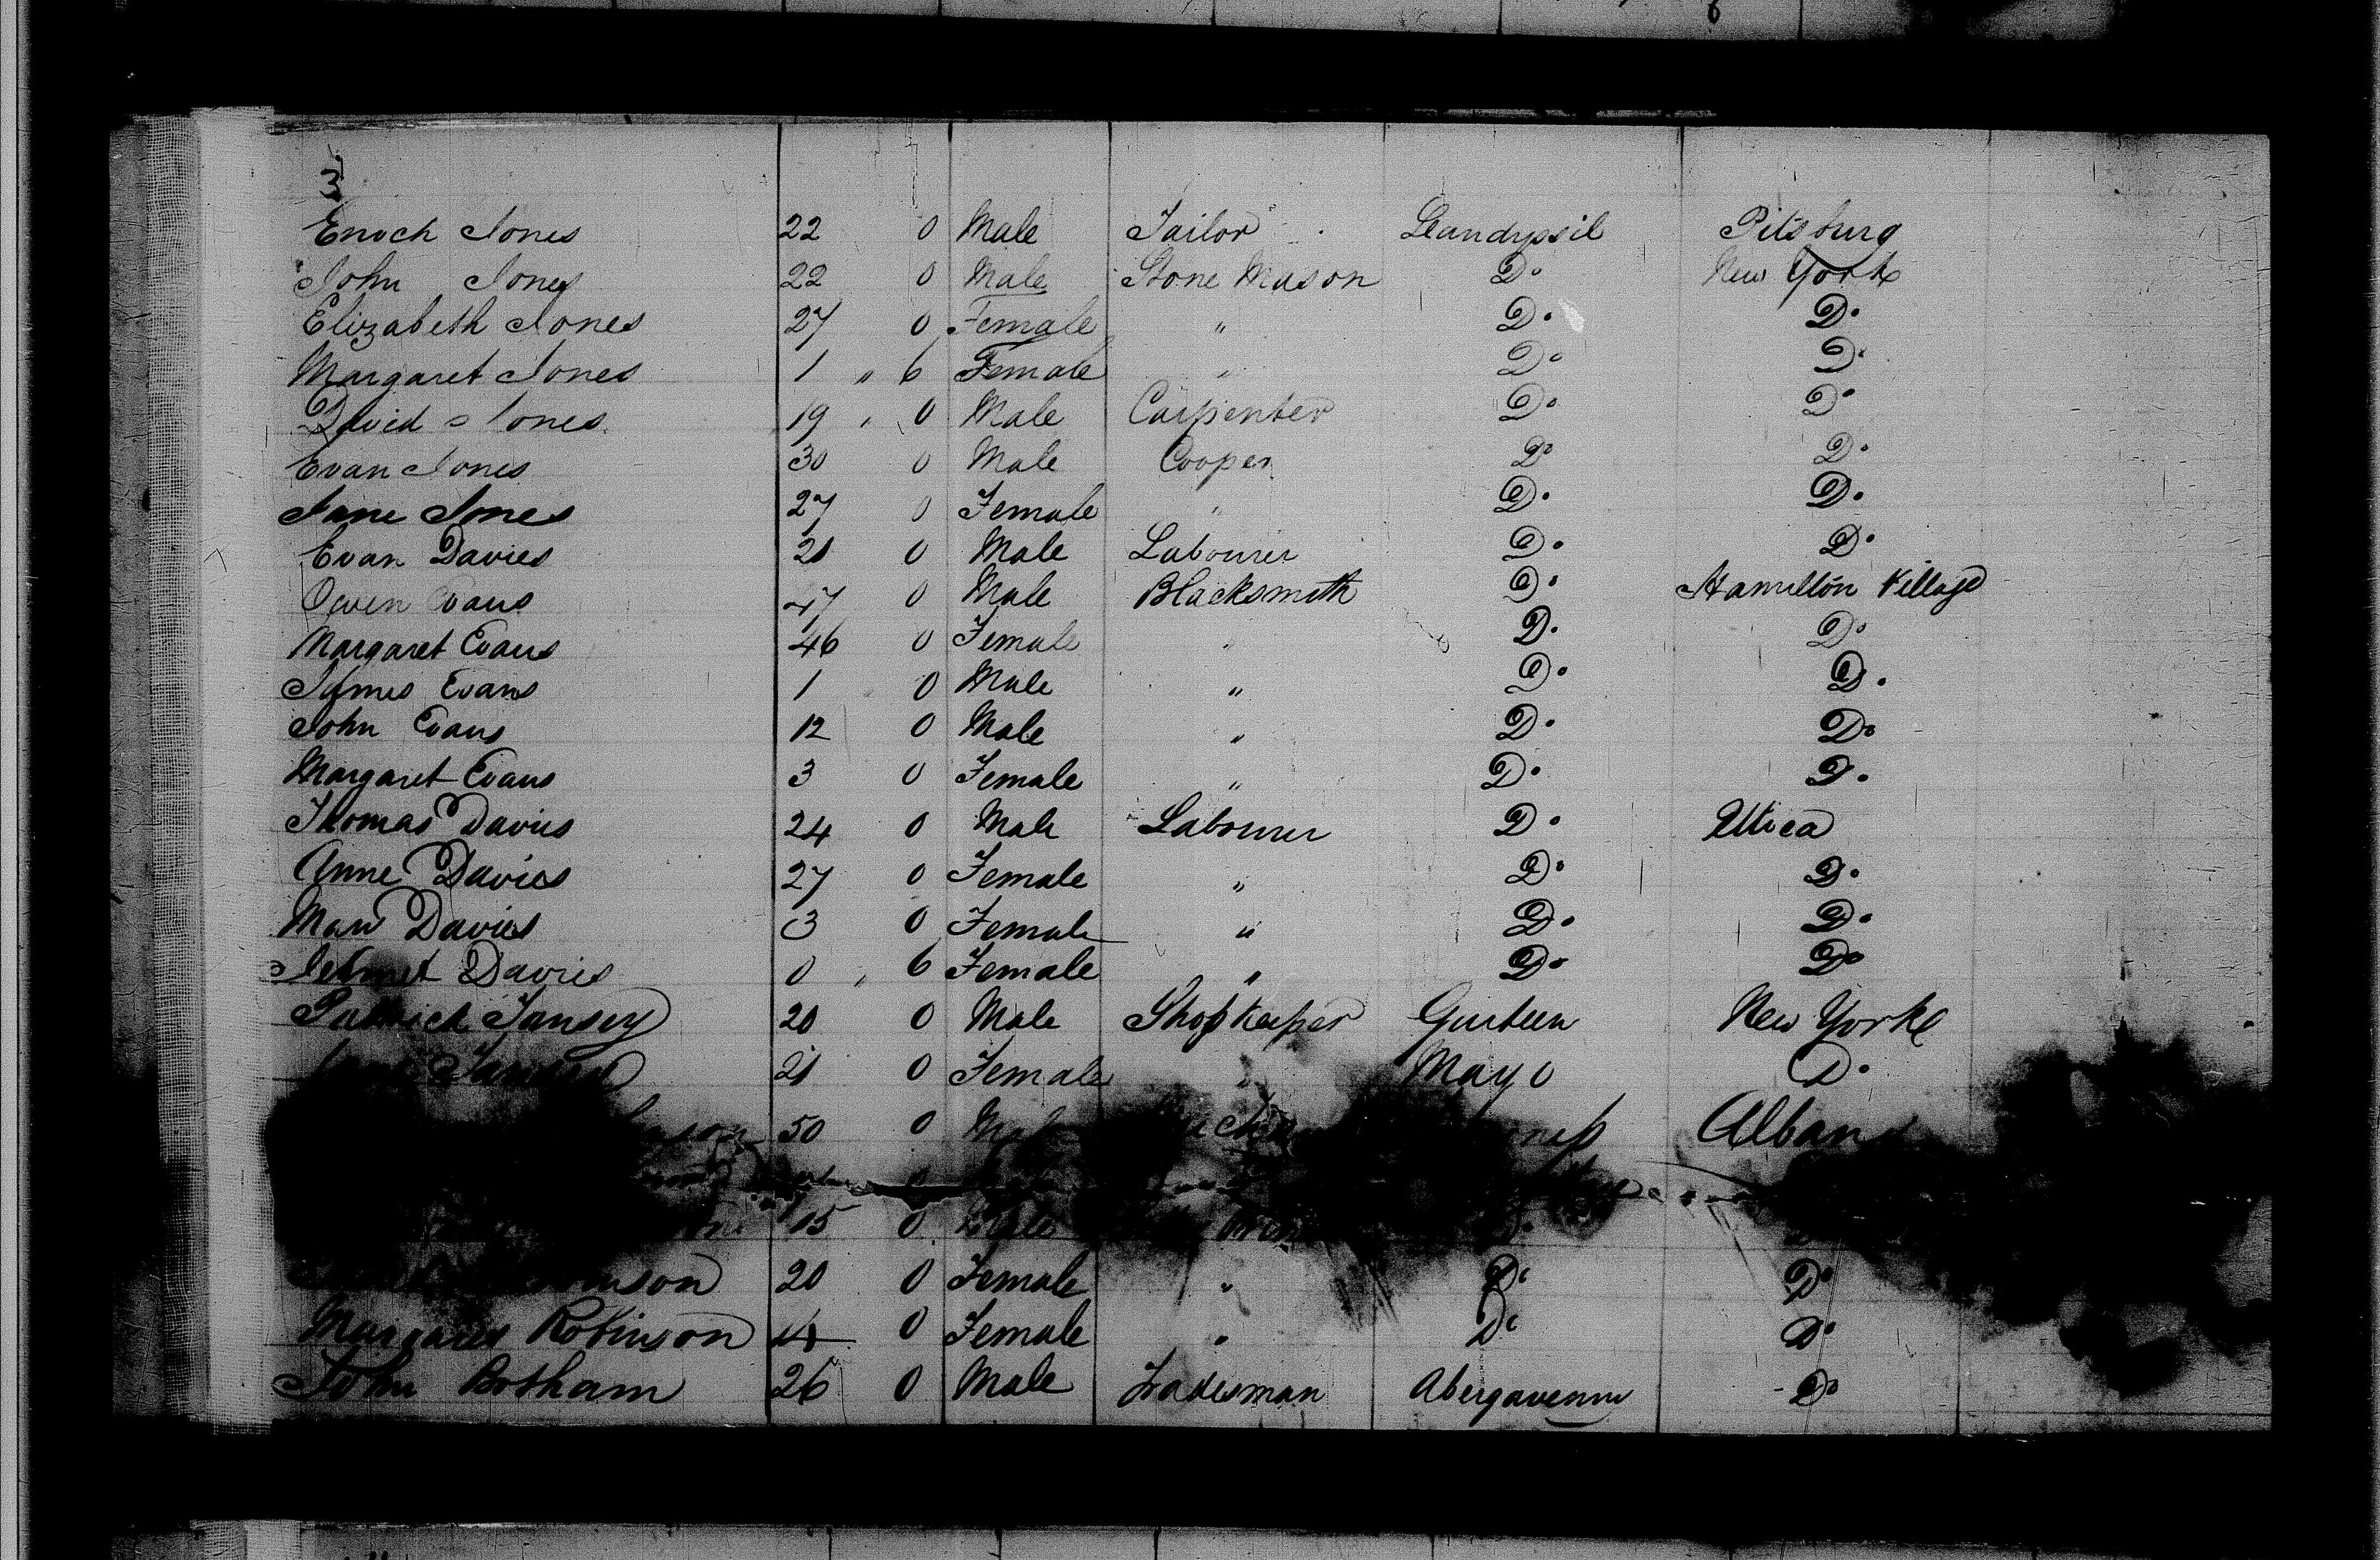 3.
Enoch Jones 22 0 Male Tailor Leandyssil Pitsburg
John Jones 22 0 Male Stone Mason Do New York
Elizabeth Jones 27 0 Female " Do Do
Margaret Jones 1 " 6 Female " Do Do
David Jones 19 " 0 Male Carpenter Do Do
Evan Jones 30 0 Male Cooper Do Do
Jane Jones 27 0 Female " Do Do
Evan Davies 21 0 Male Labourer Do Do
Owen Evans 47 0 Male Blacksmith Do Hamilton Village
Margaret Evans 46 0 Female " Do Do
James Evans 1 0 Male " Do Do
John Evans 12 0 Male " Do Do
Margaret Evans 3 0 Female " Do Do
Thomas Davies 24 0 Male Labourer Do Utica
Anne Davies 27 0 Female " Do Do
Davies 3 0 Female " Do Do
Davies 0 " 6 Female " Do Do
Patrick Tansey 20 0 Male Shopkeeper Gurteen New York
21 0 Female " Mayo Do
50 0 Male Albany
0
15 0 Male Do
20 0 Female " Do Do
Margaret Robinson 0 Female " Do Do
John Botham 26 0 Male Tradesman Abergavenny Do